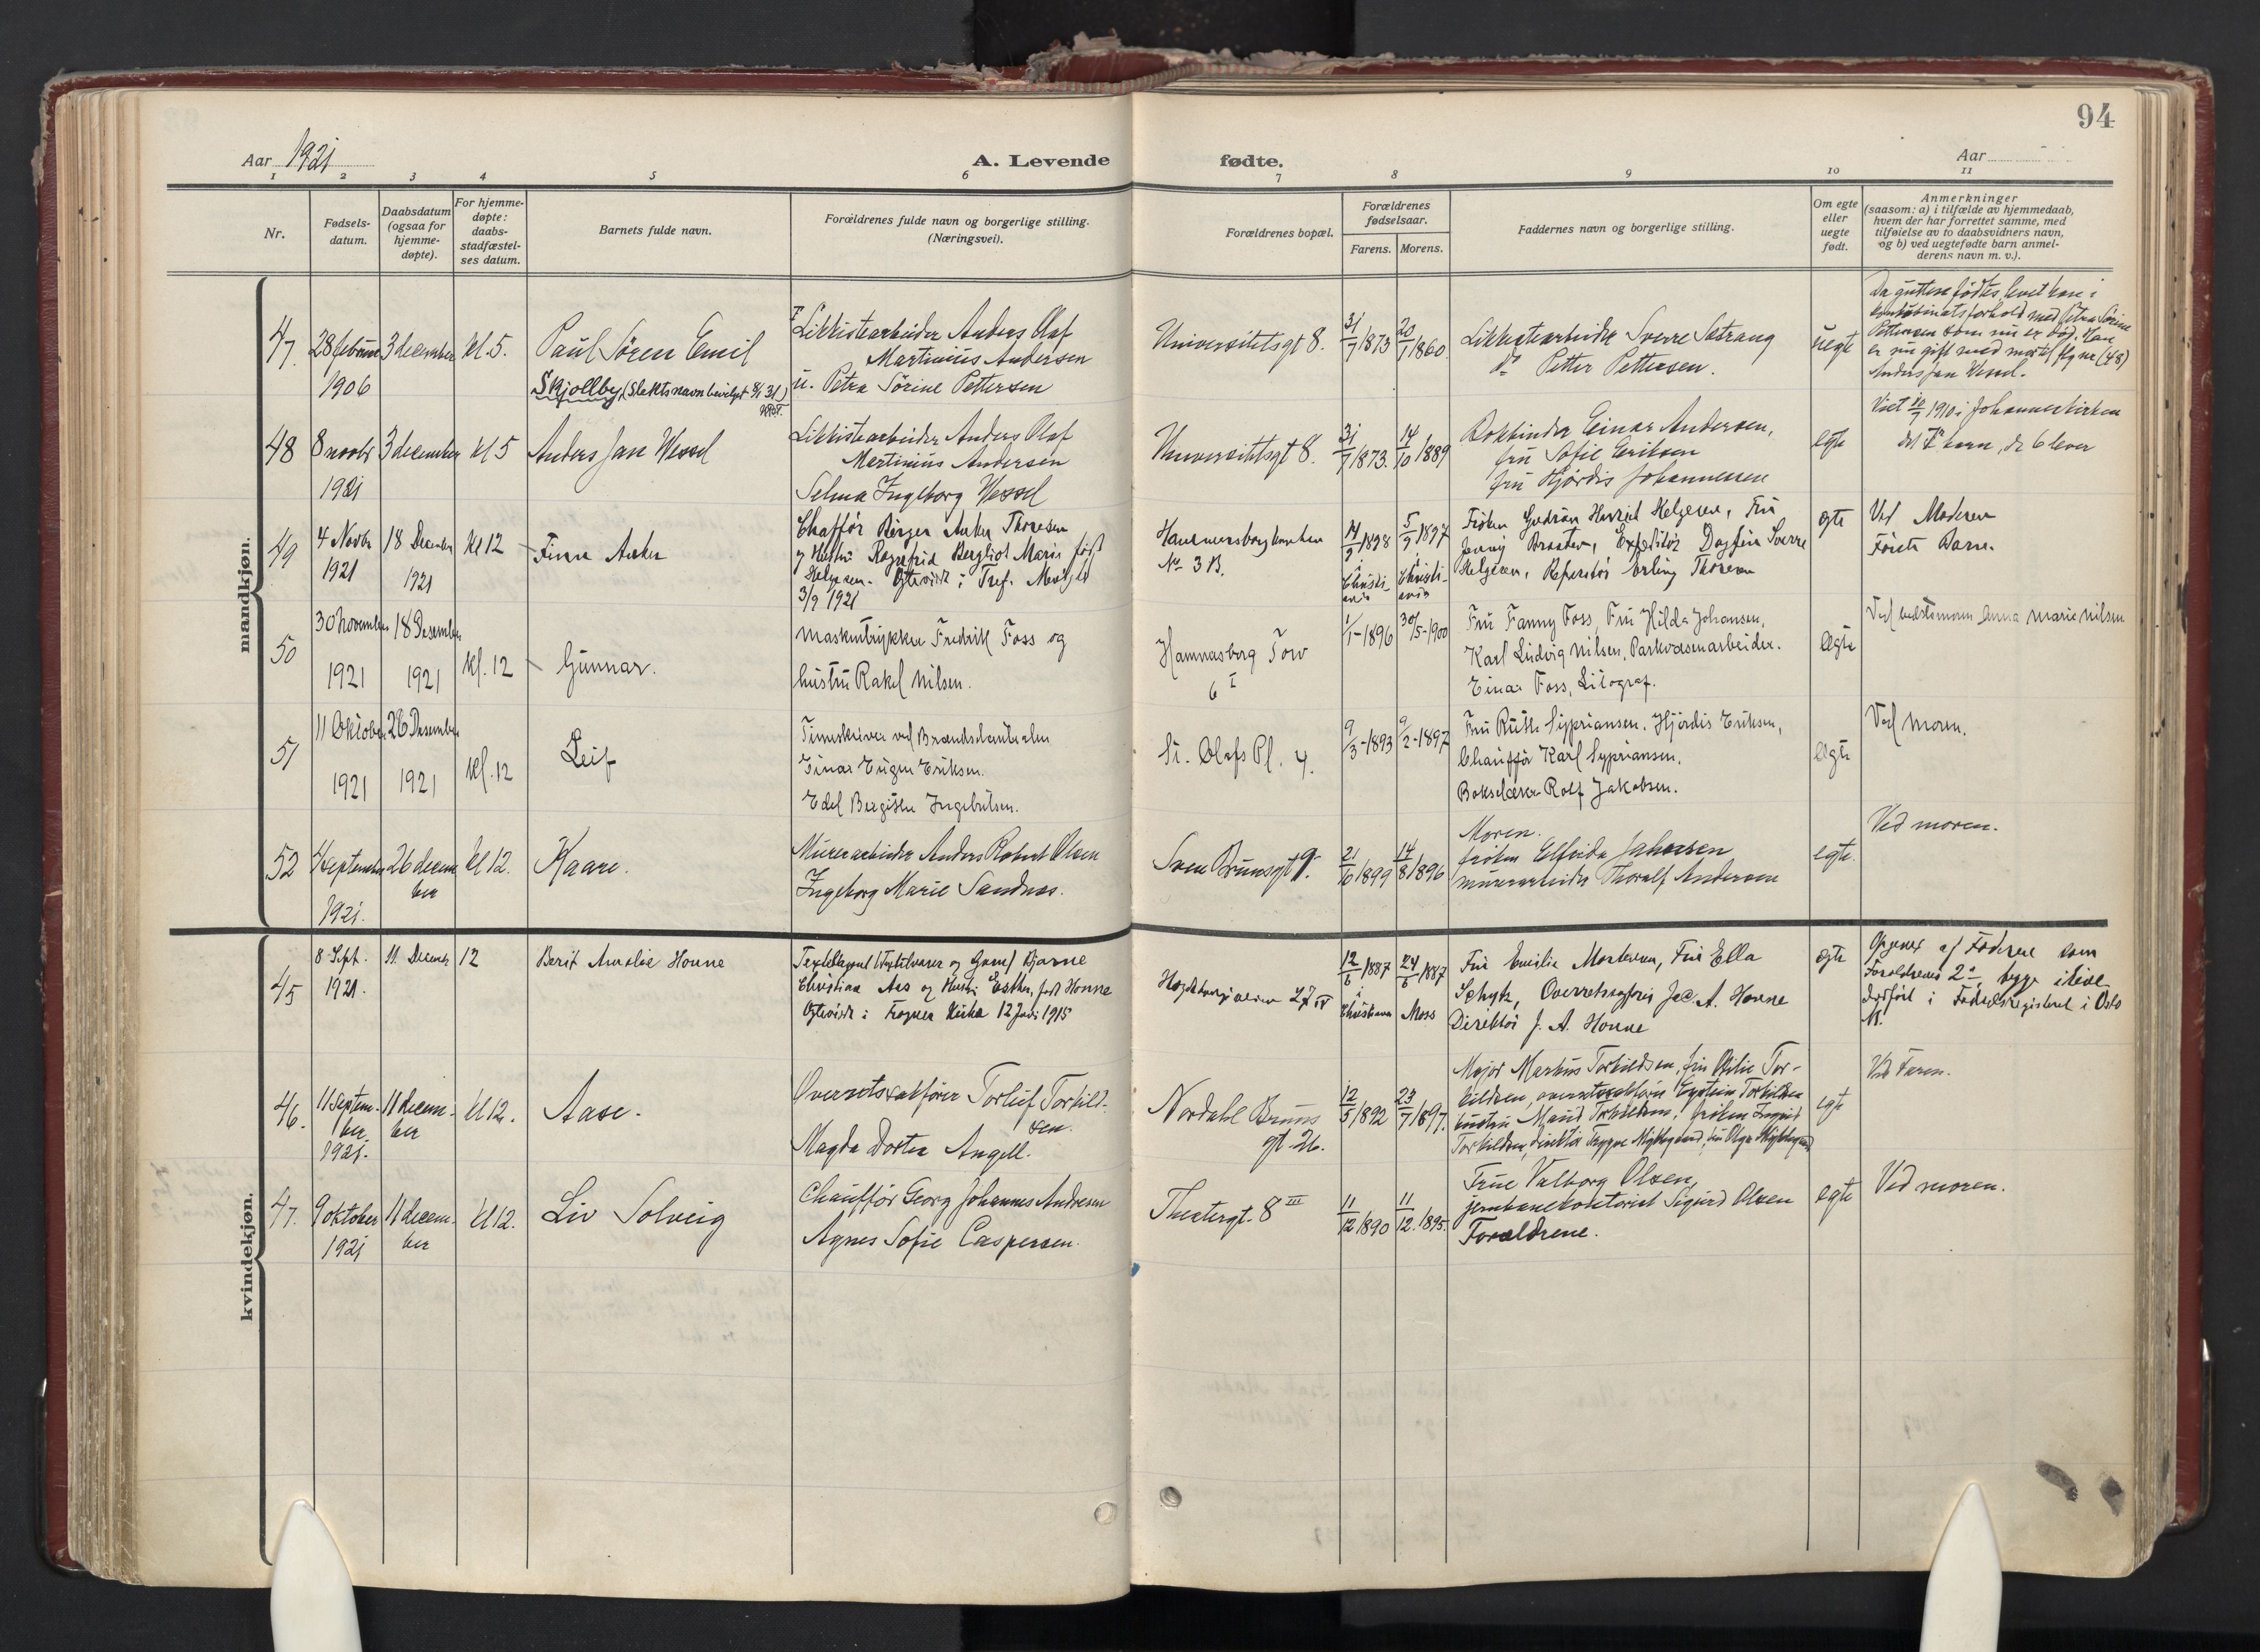 94
Aar 1921
A. Levende
fødte.
Aar
1 2 3 4 5 6 7 8 9 10 11
Nr.
Fødsels-
datum.
Daabsdatum
(ogsaa for
hjemme-
døpte).
For hjemme-
døpte:
daabs-
stadfæstel-
ses datum.
Barnets fulde navn.
Forældrenes fulde navn og borgerlige stilling.
(Næringsvei).
Forældrenes bopæl.
Forældrenes
fødselsaar.
Farens. Morens.
Faddernes navn og borgerlige stilling.
Om egte
eller
uegte
født.
Anmerkninger
(saasom: a) i tilfælde av hjemmedaab,
hvem der har forrettet samme, med
tilføielse av to daabsvidners navn,
og b) ved uegtefødte barn anmel-
derens navn m. v.).
mandkjøn.
47.
28 februar
1906
3 december
kl. 5.
Paul Søren Emil
Skjollby, (Slektsnavn bevilget 8/1 31.)
Likkistearbeider Anders Olaf
Martinius Andersen
u. Petra Sørine Pettersen
Universitetsgt 8.
31/7 1873
20/7 1860
Likkistearbeider Sverre Sætrang
do Petter Pettersen.
uegte
Da gutten fødtes levet han i
konkubinatsforhold med Petra Sørine
Pettersen som nu er død. Han
er nu gift med mor til flg nr (48)
Anders Jan Wessel.
48
8 novbr
1921
3 december
kl 5
Anders Jan Wessel
Likkistearbeider Anders Olaf
Martinius Andersen
Selma Ingeborg Wessel
Universitetsgt 8.
31/7 1873.
14/10 1889
Bokbinder Einar Andersen,
fru Sofie Eriksen
fru Hjørdis Johannessen
egte
Viet 10/7 1910 i Johanneskirken
det 7de barn, de 6 lever
49
4 Novbr
1921
18 December
1921
Kl 12
Finn Anker
Chaffør Birger Anker Thoresen
og Hustru Ragnfrid Bergliot Marie født
Helgesen. Egteviet i Tref. Menighed
3/9 1921
Hammersborgbanken
No 3 B.
14/9 1898
i
Christi-
ania
5/9 1897
i
Christi-
ania
Frøken Gudrun Harriet Helgesen, Fru
Jenny Braaten, Expeditør Dagfin Sverre
Helgesen, Reparatør Erling Thoresen
egte
Ved Moderen
Første Barn.
50
30 November
1921
18 Desember
1921
kl. 12
Gunnar.
Maskintrykker Fredrik Foss og
hustru Rakel Nilsen.
Hammersborg Torv
6 I
1/1-1896
30/5-1900
Fru Fanny Foss, Fru Hilda Johansen,
Karl Ludvig Nilsen, Parkvæsenarbeider.
Einar Foss, Litograf.
Egte
Ved bedstemoren Anna Marie Nilsen
51
11 Oktober
1921
26 Desember
1921
kl. 12
Leif
Timeskriver ved Brændselcentralen
Einar Eugen Eriksen.
Edel Bergitte Ingebritsen.
St. Olafs Pl. 4.
9/3-1893
9/2-1897
Fru Ruth Sypriansen. Hjørdis Eriksen,
Chauffør Karl Sypriansen.
Rolf Jakobsen.
Egte
Ved moren.
52
4 september
1921.
26 decem
ber
kl 12.
Kaare.
Murerarbeider Anders Robert Olsen
Ingeborg Marie Sandnes.
Sven Brunsgt 9.
21/6 1899
14/8 1896
Moren.
frøken Elfrida Johansen
murerarbeider Thoralf Andersen
egte.
Ved moren.
kvindekjøn.
45
8 Sept.
1921.
11 December
12
Berit Amalie Honne
Textilagent (Textilvarer og Garn) Bjarne
Christian Aas og Hustru Esther, født Honne
Egteviet i Frogner Kirke 12 Juni 1915
Hegdehaugsveien 27 IV
12/6 1887
i
Christiania
24/6 1887
i
Moss
Fru Emilie Mortensen, Fru Ella
Schytz, Overretssagfører Jac. A. Honne
Direktør J. A. Honne
egte
Opgivet af Faderen som
Forældrenes 2det, begge i live
Indført i Fødselsregisteret i Oslo
46.
11 septem-
ber
1921.
11 decem-
ber
kl 12.
Aase.
Overretssakfører Torleif Torkild-
sen.
Magda Dortea Angell.
Nordahl Bruns
gt. 26.
12/5 1892
23/7 1897.
Major Markus Torkildsen, fru Otilie Tor-
kildsen, overretssakfører Eystein Torkildsen
hustru Maud Torkildsen, frøken Ingrid
Torkildsen, direktør Trygve Myklegaard, fru Olga Myklegaard
egte
Ved Faren.
47.
9 oktober
1921
11 decem-
ber
kl 12.
Liv Solveig
Chauffør Georg Johannes Andresen
Agnes Sofie Caspersen.
Theatergt. 8 III
11/12 1890
11/12. 1895.
Frue Valborg Olsen,
jernbanekontorist Sigurd Olsen
Forældrene.
egte
Ved moren.